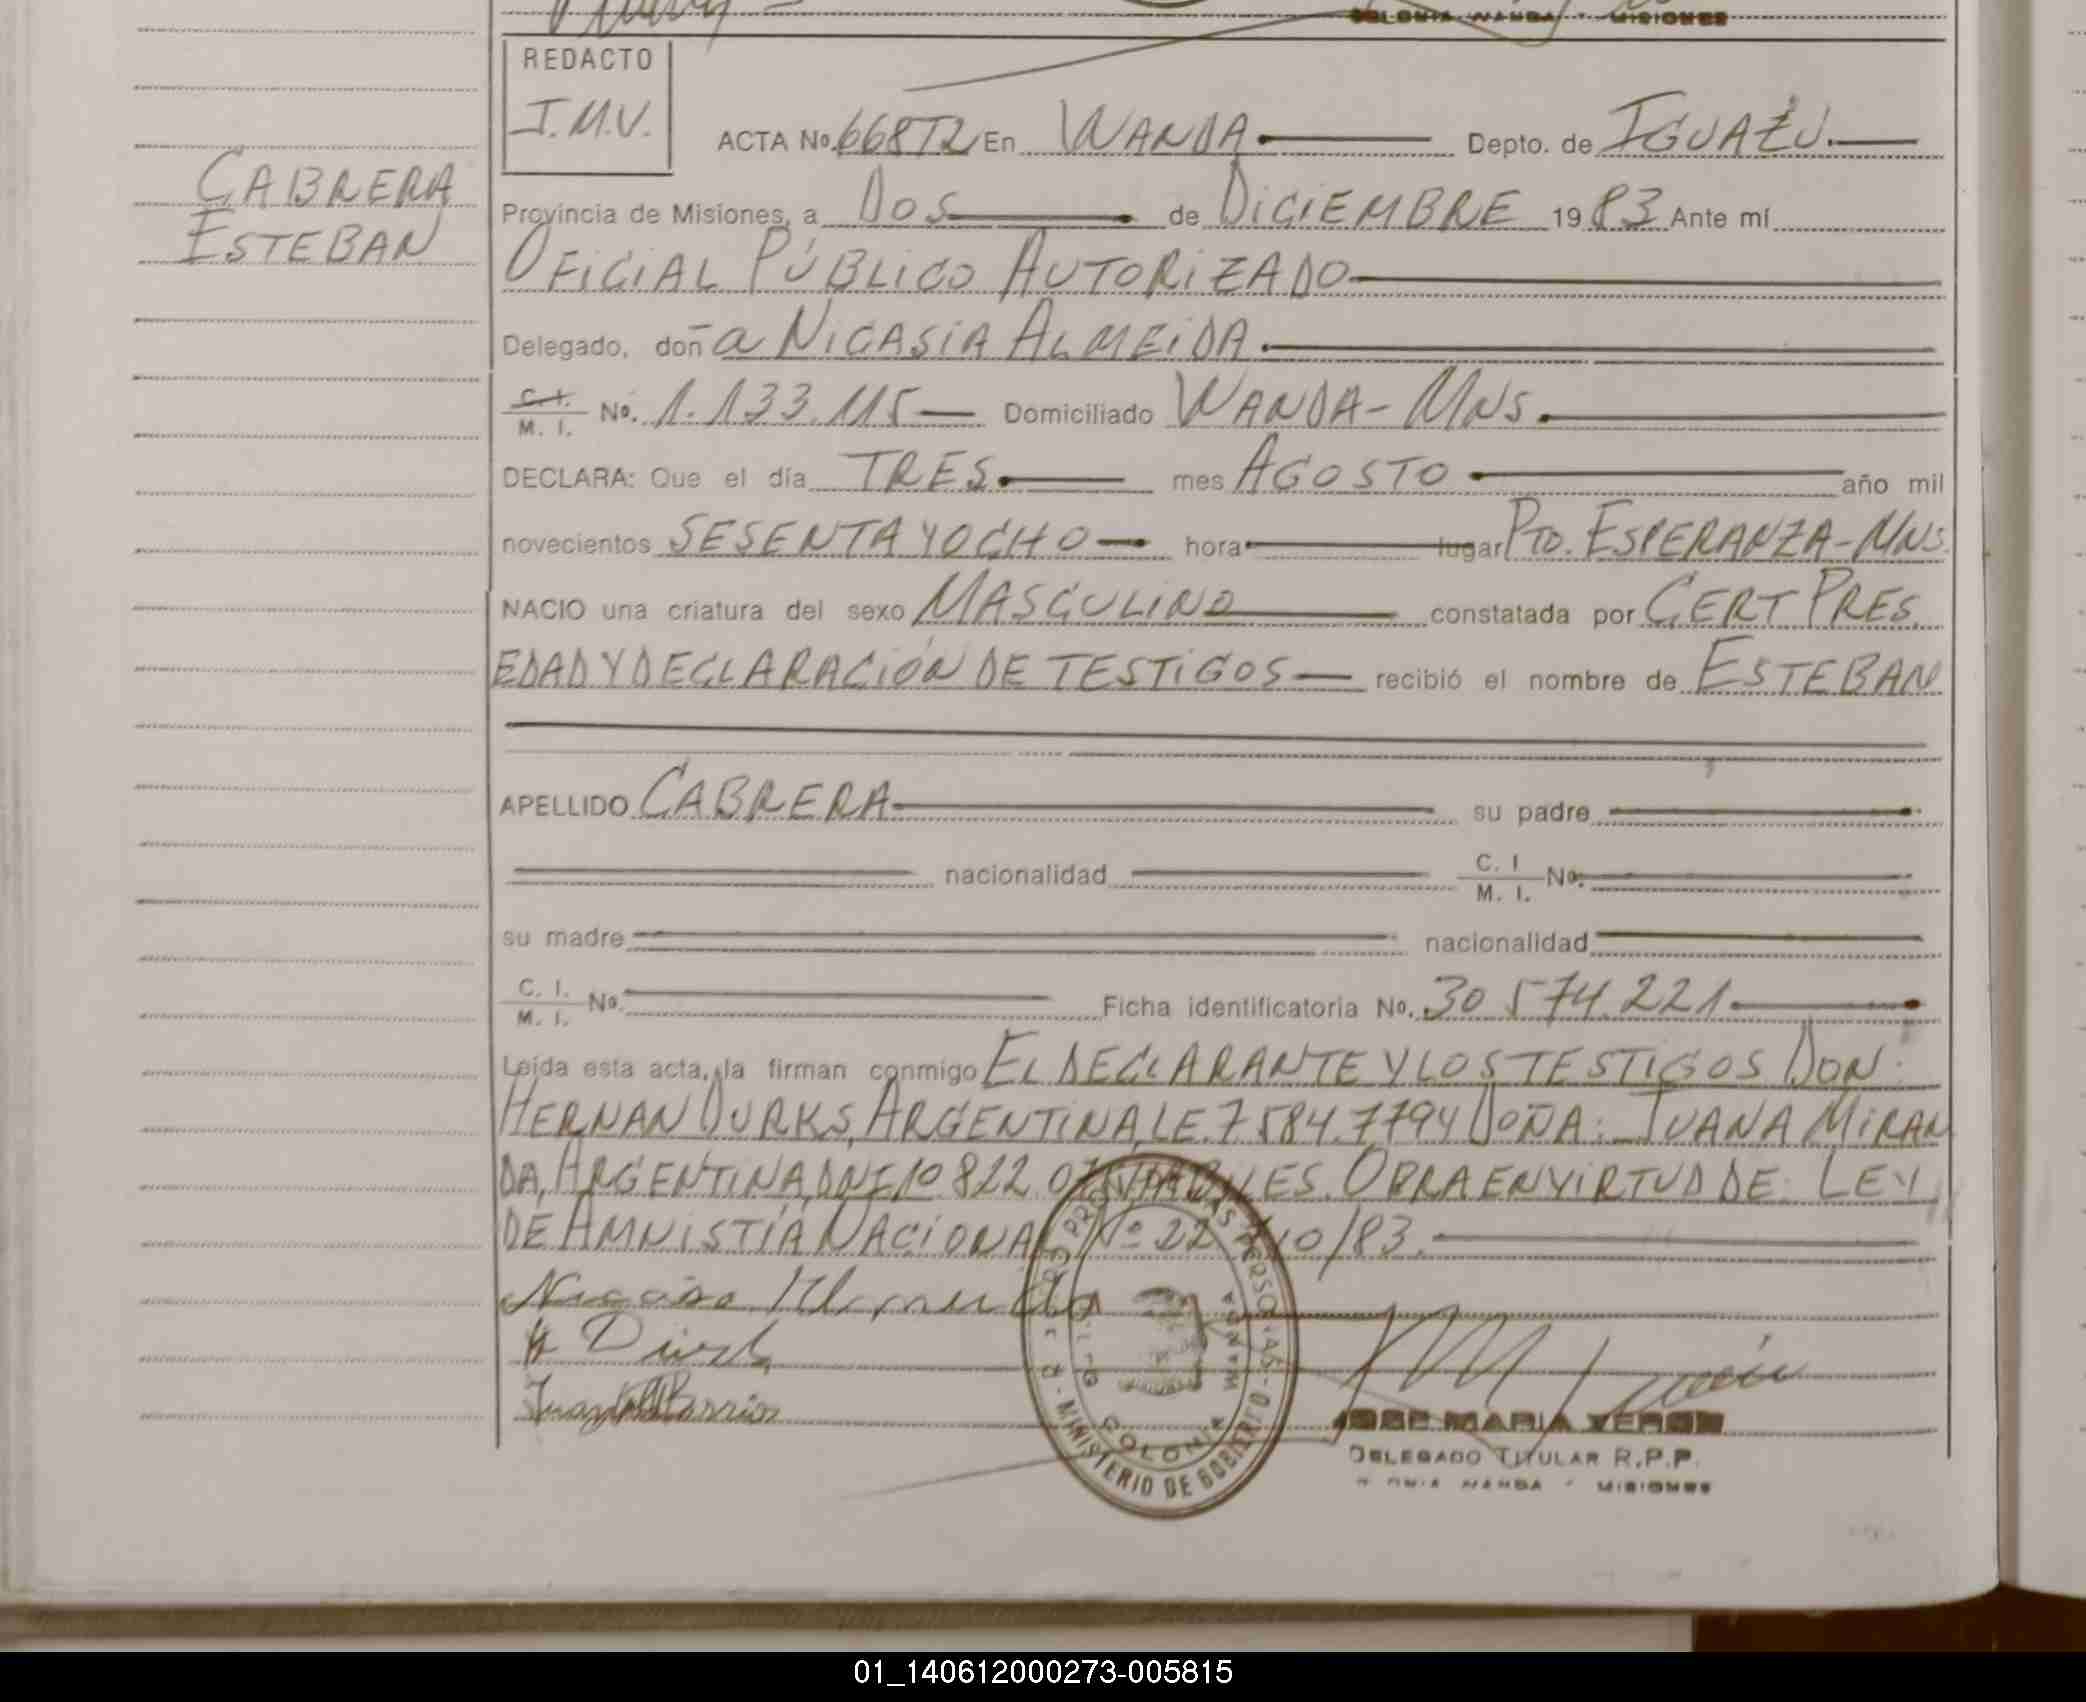 COLONIA WANDA - MISIONES
REDACTO
J.M.V.
ACTA No. 668T2 En WANDA Depto. de IGUAZÚ
CABRERA
ESTEBAN
Provincia de Misiones, a DOS de DICIEMBRE 1983 Ante mí
OFICIAL PÚBLICO AUTORIZADO
Delegado, doña NICASIA ALMEIDA
C. I.
M. I. No. 1.133.115 Domiciliado WANDA - MNS.
DECLARA: Que el día TRES mes AGOSTO año mil
novecientos SESENTA Y OCHO hora lugar PTO. ESPERANZA - MNS.
NACIO una criatura del sexo MASCULINO constatada por CERT PRES.
EDAD Y DECLARACIÓN DE TESTIGOS recibió el nombre de ESTEBAN
APELLIDO CABRERA su padre
nacionalidad C. I
M. I. No.
su madre nacionalidad
C. I.
M. I. No. Ficha identificatoria No. 30 574.221
Leída esta acta, la firman conmigo EL DECLARANTE Y LOS TESTIGOS DON:
HERNAN DURKS, ARGENTINA, L.E. 7.584.7794 DOÑA: JUANA MIRAN
DA, ARGENTINA, DNI 10 822 HABILES. OBRA EN VIRTUD DE LEY
DE AMNISTÍA NACIONAL Nº 22 /10/83.
JOSE MARIA VERON
DELEGADO TITULAR R.P.P.
COLONIA WANDA - MISIONES
MINISTERIO DE GOBIERNO
COLONIA
WANDA
01_140612000273-005815